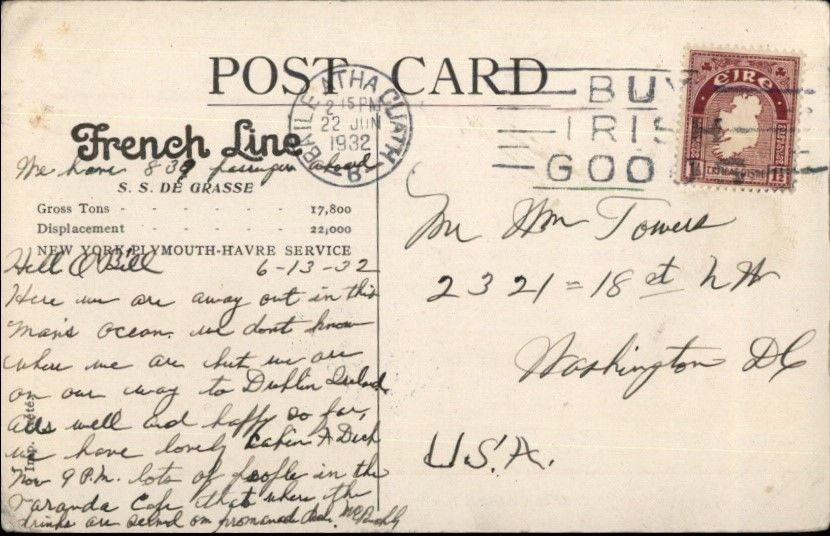 POST CARD
BAILE ATHA CLIATH
2 15 PM
22 JUN
1932
B
BUY
IRISH
GOO
EIRE
French Line
We have 839 passengers aboard
S. S. DE GRASSE
Gross Tons - - - - - 17,800
Displacement - - - - 22,000
NEW YORK-PLYMOUTH-HAVRE SERVICE
Hell O Bill 6-13-32
Here we are away out in this
mans ocean. we dont know
where we are but we are
on our way to Dublin Ireland
alls well and happy so far,
we have lovely Cabin A Deck
Now 9 P.M. lots of people in the
varanda Cafe that where the
drinks are served on promanade deck.
Imp. Crété
Mr Wm Towers
2321 = 18 st N W
Washington DC
U.S.A.